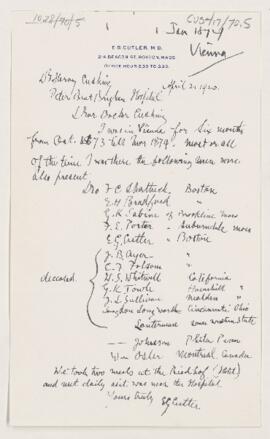 1028/90/5
CUS417/70.5
Jan 1874
Vienna
E.G. CUTLER, M.D.
214 BEACON ST. BOSTON, MASS.
OFFICE HOURS 2.30 TO 3.30.
April 21 1920.
Dr Harvey Cushing
Peter Bent Brigham Hospital
Dear Doctor Cushing
I was in Vienna for six months
from Oct. 1873 till Mar 1874. Most or all
of the time I was there the following were
also present
Drs F C Shattuck Boston
E H Bradford "
G K Sabine of Brookline Mass
F. E. Porter Auburndale Mass
E G Cutler Boston
deceased
J. B. Ayer "
C. F Folsom "
H. S. Whitwell California
G K Towle Haverhill "
J. L Sullivan Malden "
Langdon Longworth Cincinnati Ohio
Lautenman some western State
— Johnson Phila Penn
Wm Osler Montreal Canada
We took two meals at the Riedhof
and met daily as it was near the Hospital
Yours truly E G Cutler